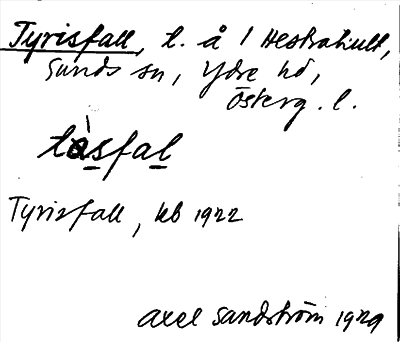 Tyrisfall, t. å / Hestrahult,
Sunds sn, Ydre hd,
Österg. l.
tàsfal
Tyrisfall, kb 1922
Axel Sandström 1929